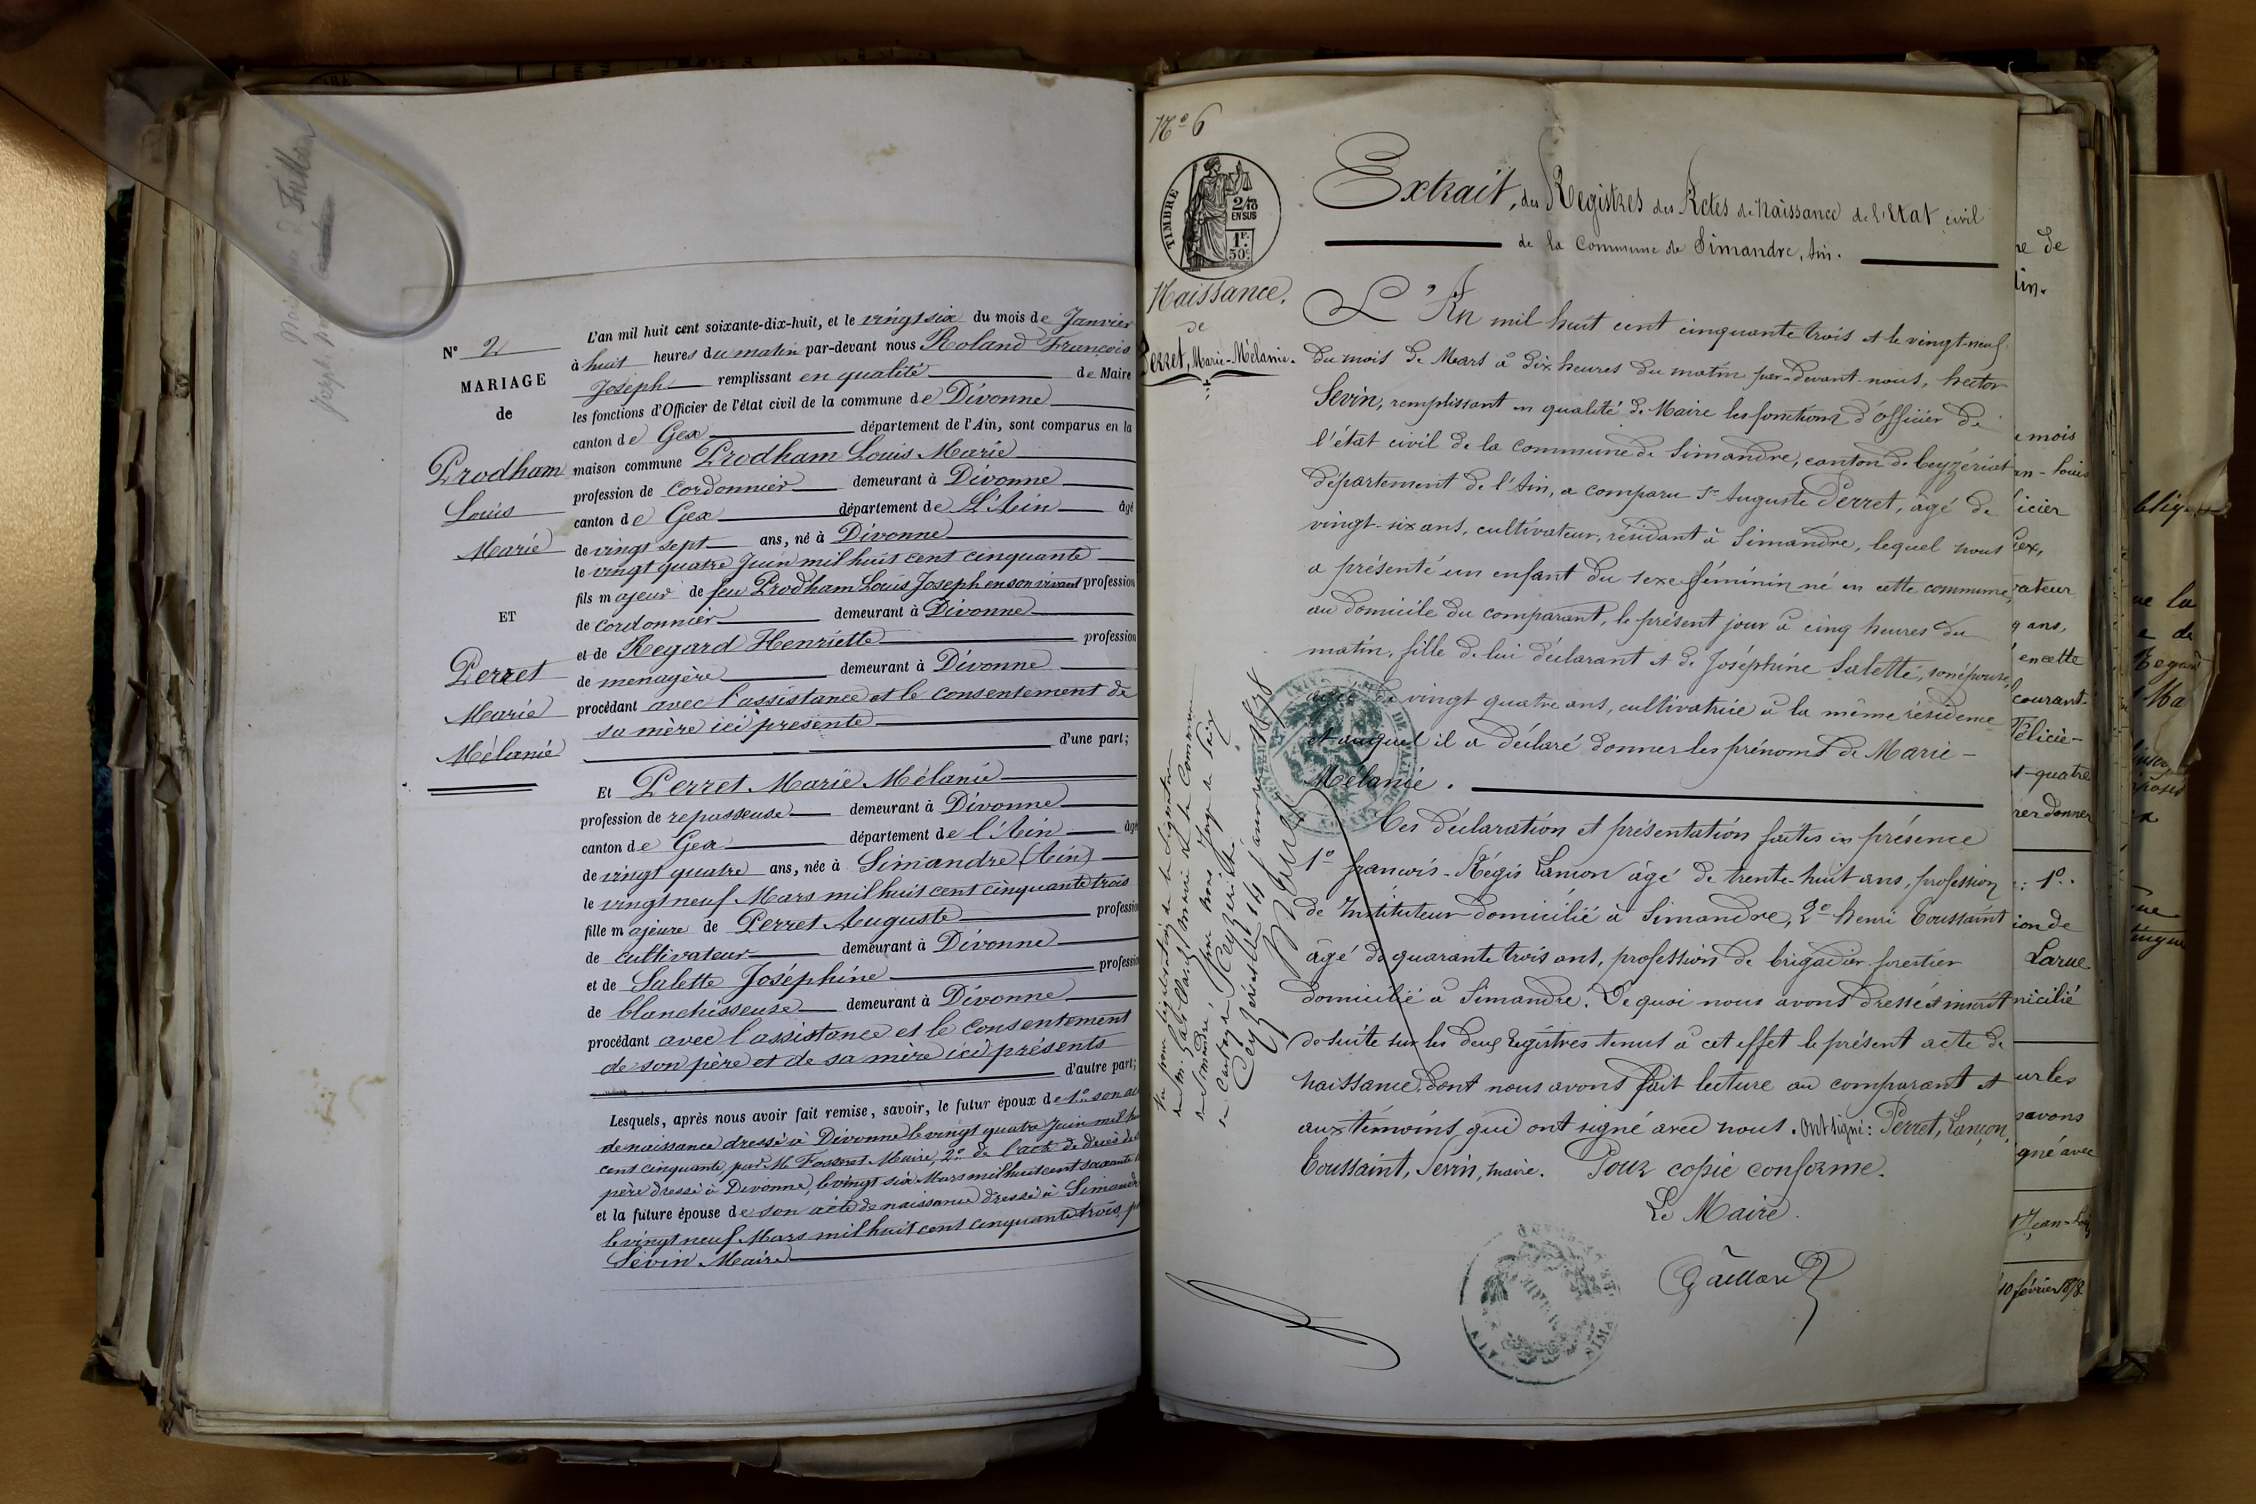 N° 2
MARIAGE
de
Prodham
Louis
Marie
ET
Perret
Marie
Mélanie
L'an mil huit cent soixante-dix-huit, et le vingt six du mois de Janvier
à huit heures du matin par-devant nous Roland François
Joseph remplissant en qualité de Maire
les fonctions d'Officier de l'état civil de la commune de Divonne
canton de Gex département de l'Ain, sont comparus en la
maison commune Prodham Louis Marie
profession de cordonnier demeurant à Divonne
canton de Gex département de L'Ain âgé
de vingt sept ans, né à Divonne
le vingt quatre Juin mil huit cent cinquante
fils majeur de feu Prodham Louis Joseph en son vivant profession
de cordonnier demeurant à Divonne
et de Regard Henriette profession
de menagère demeurant à Divonne
procédant avec l'assistance et le consentement de
sa mère ici présente
d'une part;
Et Perret Marie Mélanie
profession de repasseuse demeurant à Divonne
canton de Gex département de l'Ain âgé
de vingt quatre ans, née à Simandre (Ain)
le vingt neuf Mars mil huit cent cinquante trois
fille majeure de Perret Auguste profession
de cultivateur demeurant à Divonne
et de Salette Joséphine profession
de blanchisseuse demeurant à Divonne
procédant avec l'assistance et le consentement
de son père et de sa mère ici présents
d'autre part;
Lesquels, après nous avoir fait remise, savoir, le futur époux de 1° son
de naissance dressé à Divonne le vingt quatre Juin mil
cent cinquante par M. Maire, 2° de l'acte de décès de
père dressé à Divonne, le vingt six Mars mil huit cent soixante
et la future épouse de son acte de naissance dressé à Simandre
le vingt neuf Mars mil huit cent cinquante trois
Sevin Maire
N° 6
TIMBRE
2/10
EN SUS
1F.
50c.
Naissance.
de
Perret, Marie-Mélanie.
Extrait, des Registres des Actes de Naissance de l'Etat civil
de la Commune de Simandre, Ain.
L'An mil huit cent cinquante trois et le vingt-neuf
du mois de Mars à dix heures du matin par-devant nous, hector
Sevin, remplissant en qualité de Maire les fonctions d'officier de
l'état civil de la commune de Simandre, canton de Ceyzériat
département de l'Ain, a comparu Sr Auguste Perret, âgé de
vingt-six ans, cultivateur, résidant à Simandre, lequel nous
a présenté un enfant du sexe féminin né en cette commune,
au domicile du comparant, le présent jour à cinq heures du
matin, fille de lui déclarant et de Joséphine Salette, son épouse,
âgée de vingt quatre ans, cultivatrice à la même résidence
et auquel il a déclaré donner les prénoms de Marie-
Mélanie.
Ces déclaration et présentation faites en présence
1° françois-Régis Lançon âgé de trente-huit ans, profession
de Instituteur domicilié à Simandre, 2° henri Toussaint
âgé de quarante trois ans, profession de brigadier forestier
domicilié à Simandre. De quoi nous avons dressé et inscrit
de suite sur les deux registres tenus à cet effet le présent acte de
naissance, dont nous avons fait lecture au comparant et
aux témoins qui ont signé avec nous. Ont signé: Perret, Lançon,
Toussaint, Sevin, maire. Pour copie conforme.
Le Maire.
Gaillard
Vu pour légalisation de la signature
de Mr. Gaillard maire de la Commune
de Simandre par nous Juge de Paix
du Canton de Ceyzériat.
Ceyzériat le 14 Janvier 1878
mois
an-Louis
icier
Gex,
vateur
ans,
en cette
courant
Félicie-
quatre
donner
1°.
ion de
Larue
micilié
sur les
avons
signé avec
Jean-Louis
10 février 1878.